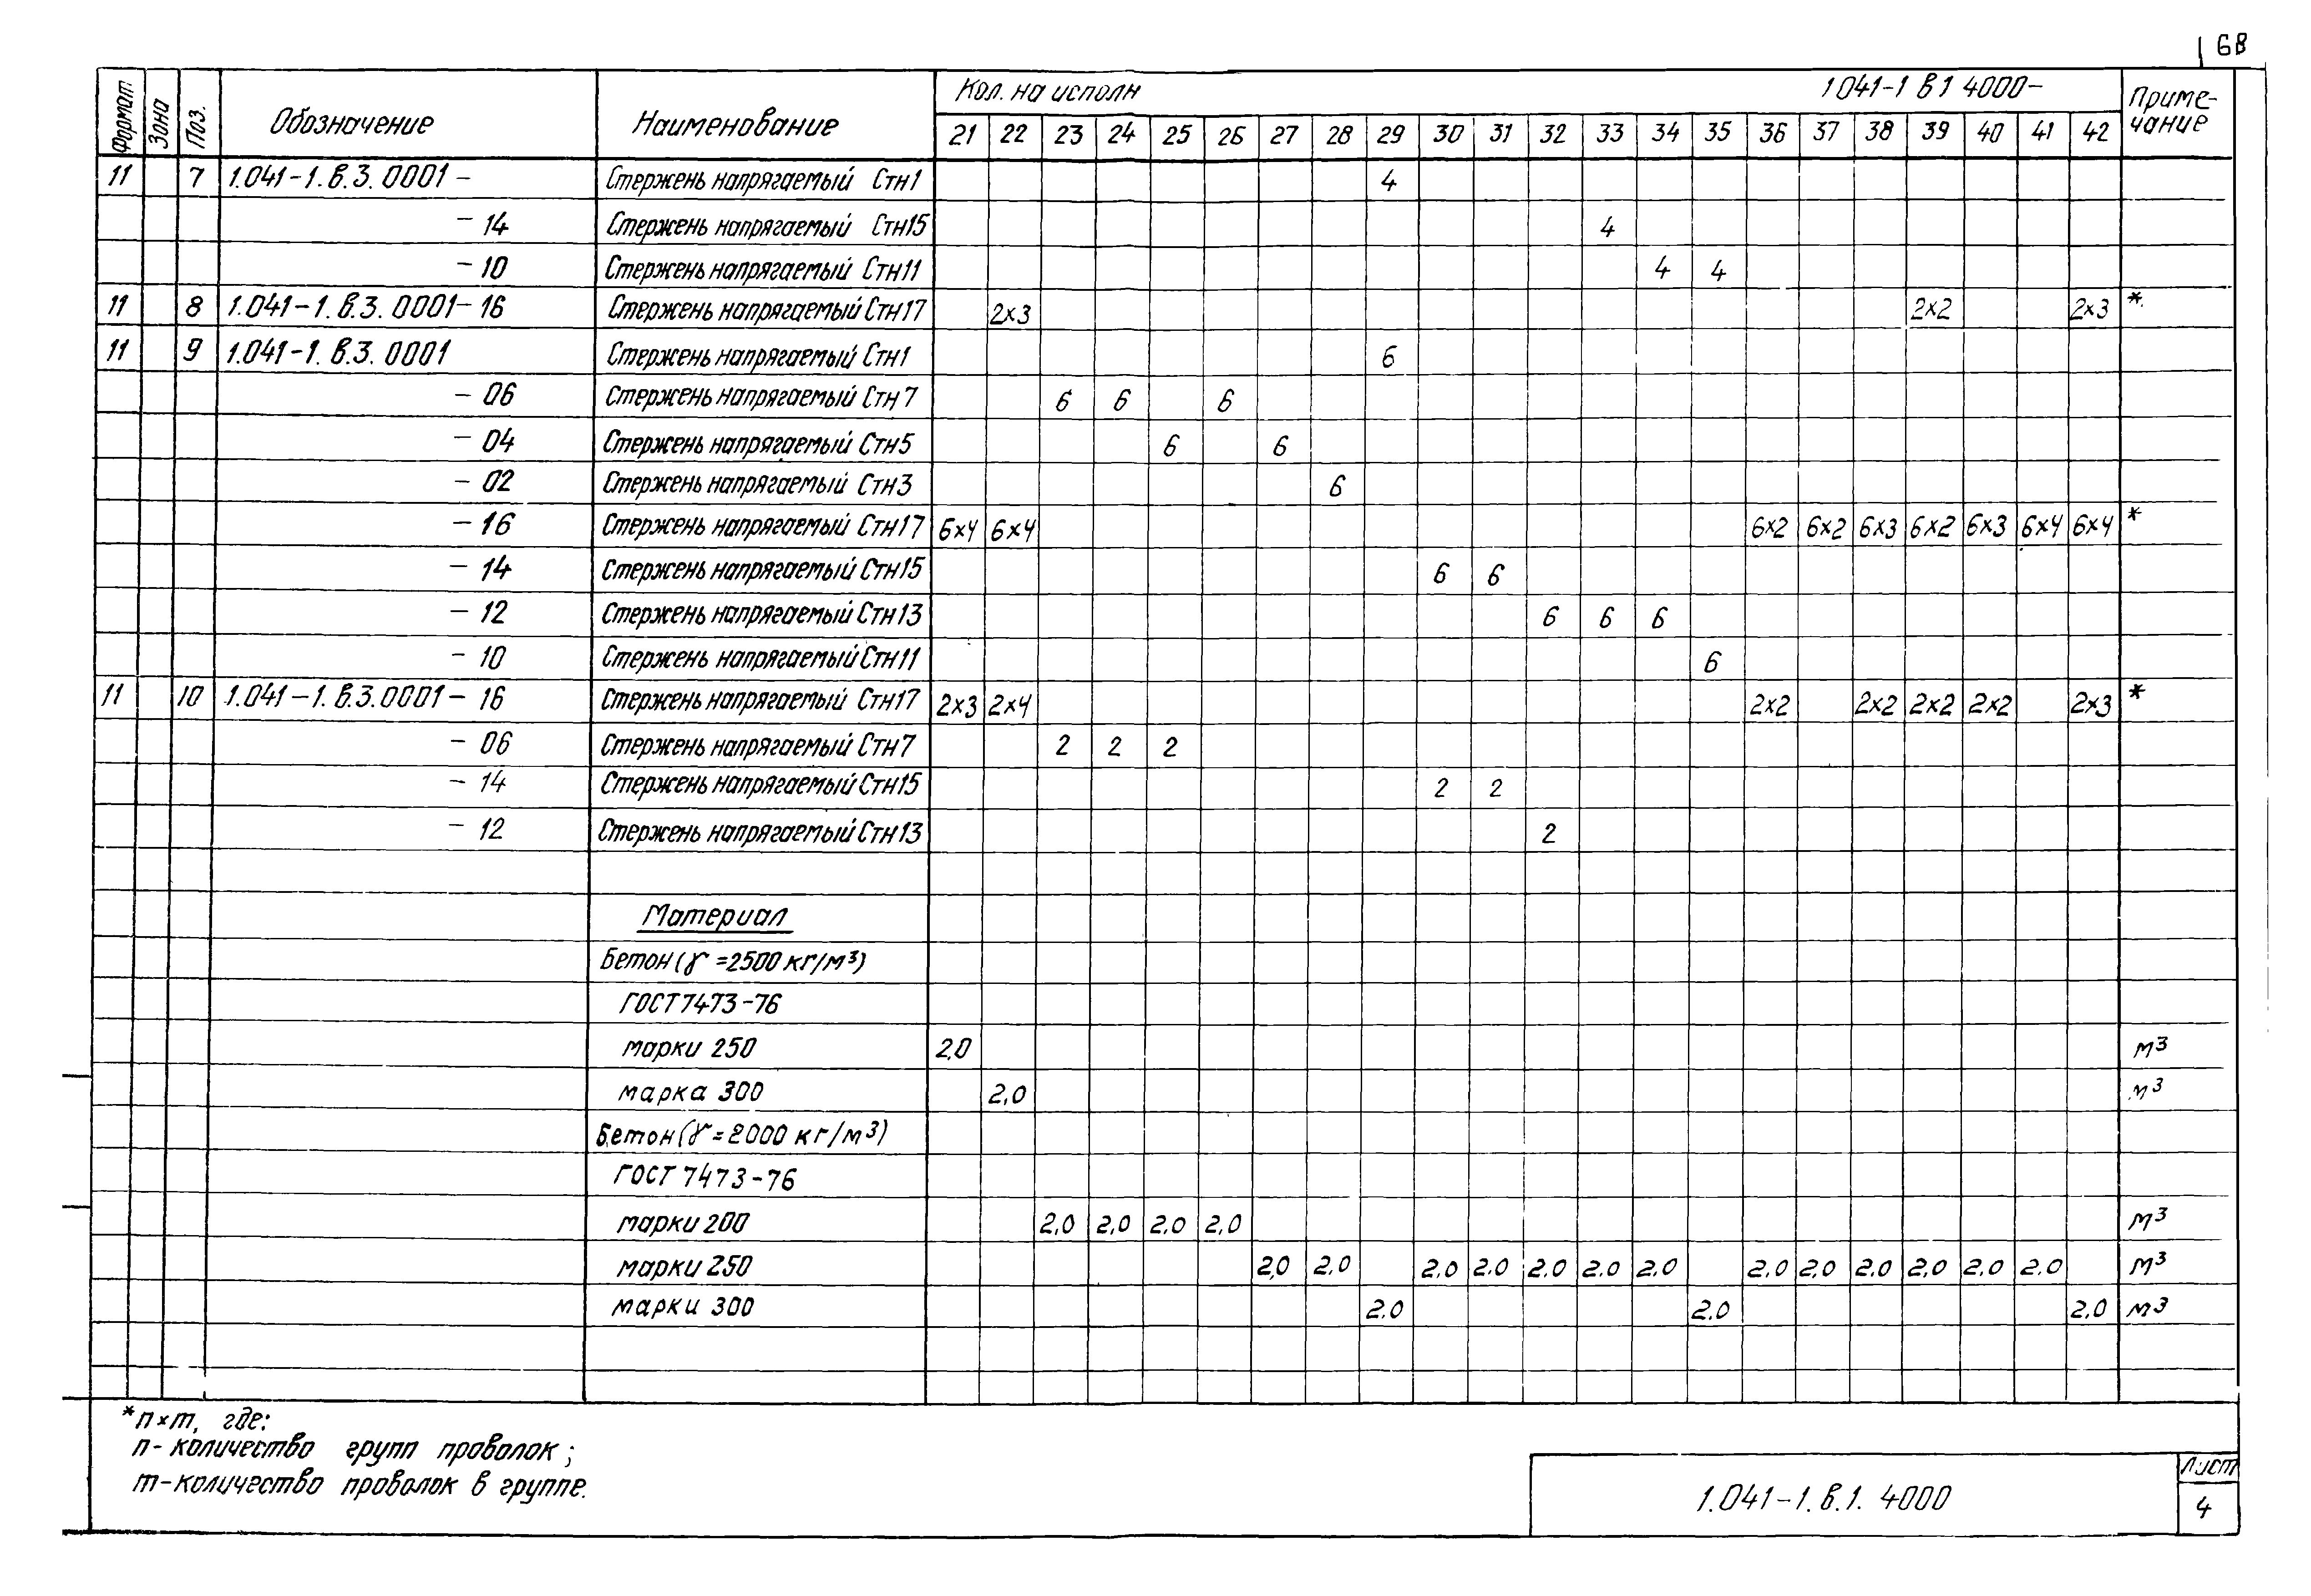 68
Формат Зона Поз. Обозначение Наименование Кол. на исполн 1 041-1 в1 4000- Приме-
21 22 23 24 25 26 27 28 29 30 31 32 33 34 35 36 37 38 39 40 41 42 чание
11 7 1.041-1.в.3.0001 - Стержень напрягаемый Стн1 4
- 14 Стержень напрягаемый Стн15 4
- 10 Стержень напрягаемый Стн11 4 4
11 8 1.041-1.в.3.0001- 16 Стержень напрягаемый Стн17 2×3 2×2 2×3 *
11 9 1.041-1.в.3.0001 Стержень напрягаемый Стн1 6
- 06 Стержень напрягаемый Стн7 6 6 6
- 04 Стержень напрягаемый Стн5 6 6
- 02 Стержень напрягаемый Стн3 6
- 16 Стержень напрягаемый Стн17 6×4 6×4 6×2 6×2 6×3 6×2 6×3 6×4 6×4 *
- 14 Стержень напрягаемый Стн15 6 6
- 12 Стержень напрягаемый Стн13 6 6 6
- 10 Стержень напрягаемый Стн11 6
11 10 1.041-1.в.3.0001- 16 Стержень напрягаемый Стн17 2×3 2×4 2×2 2×2 2×2 2×2 2×3 *
- 06 Стержень напрягаемый Стн7 2 2 2
- 14 Стержень напрягаемый Стн15 2 2
- 12 Стержень напрягаемый Стн13 2
Материал
Бетон (γ=2500 кг/м³)
ГОСТ 7473-76
марки 250 2,0 м³
марка 300 2,0 м³
Бетон (γ=2000 кг/м³)
ГОСТ 7473-76
марки 200 2,0 2,0 2,0 2,0 м³
марки 250 2,0 2,0 2,0 2,0 2,0 2,0 2,0 2,0 2,0 2,0 2,0 2,0 2,0 м³
марки 300 2,0 2,0 2,0 м³
* n×m, где:
n- количество групп проволок;
m-количество проволок в группе.
Лист
1.041-1.в.1. 4000
4